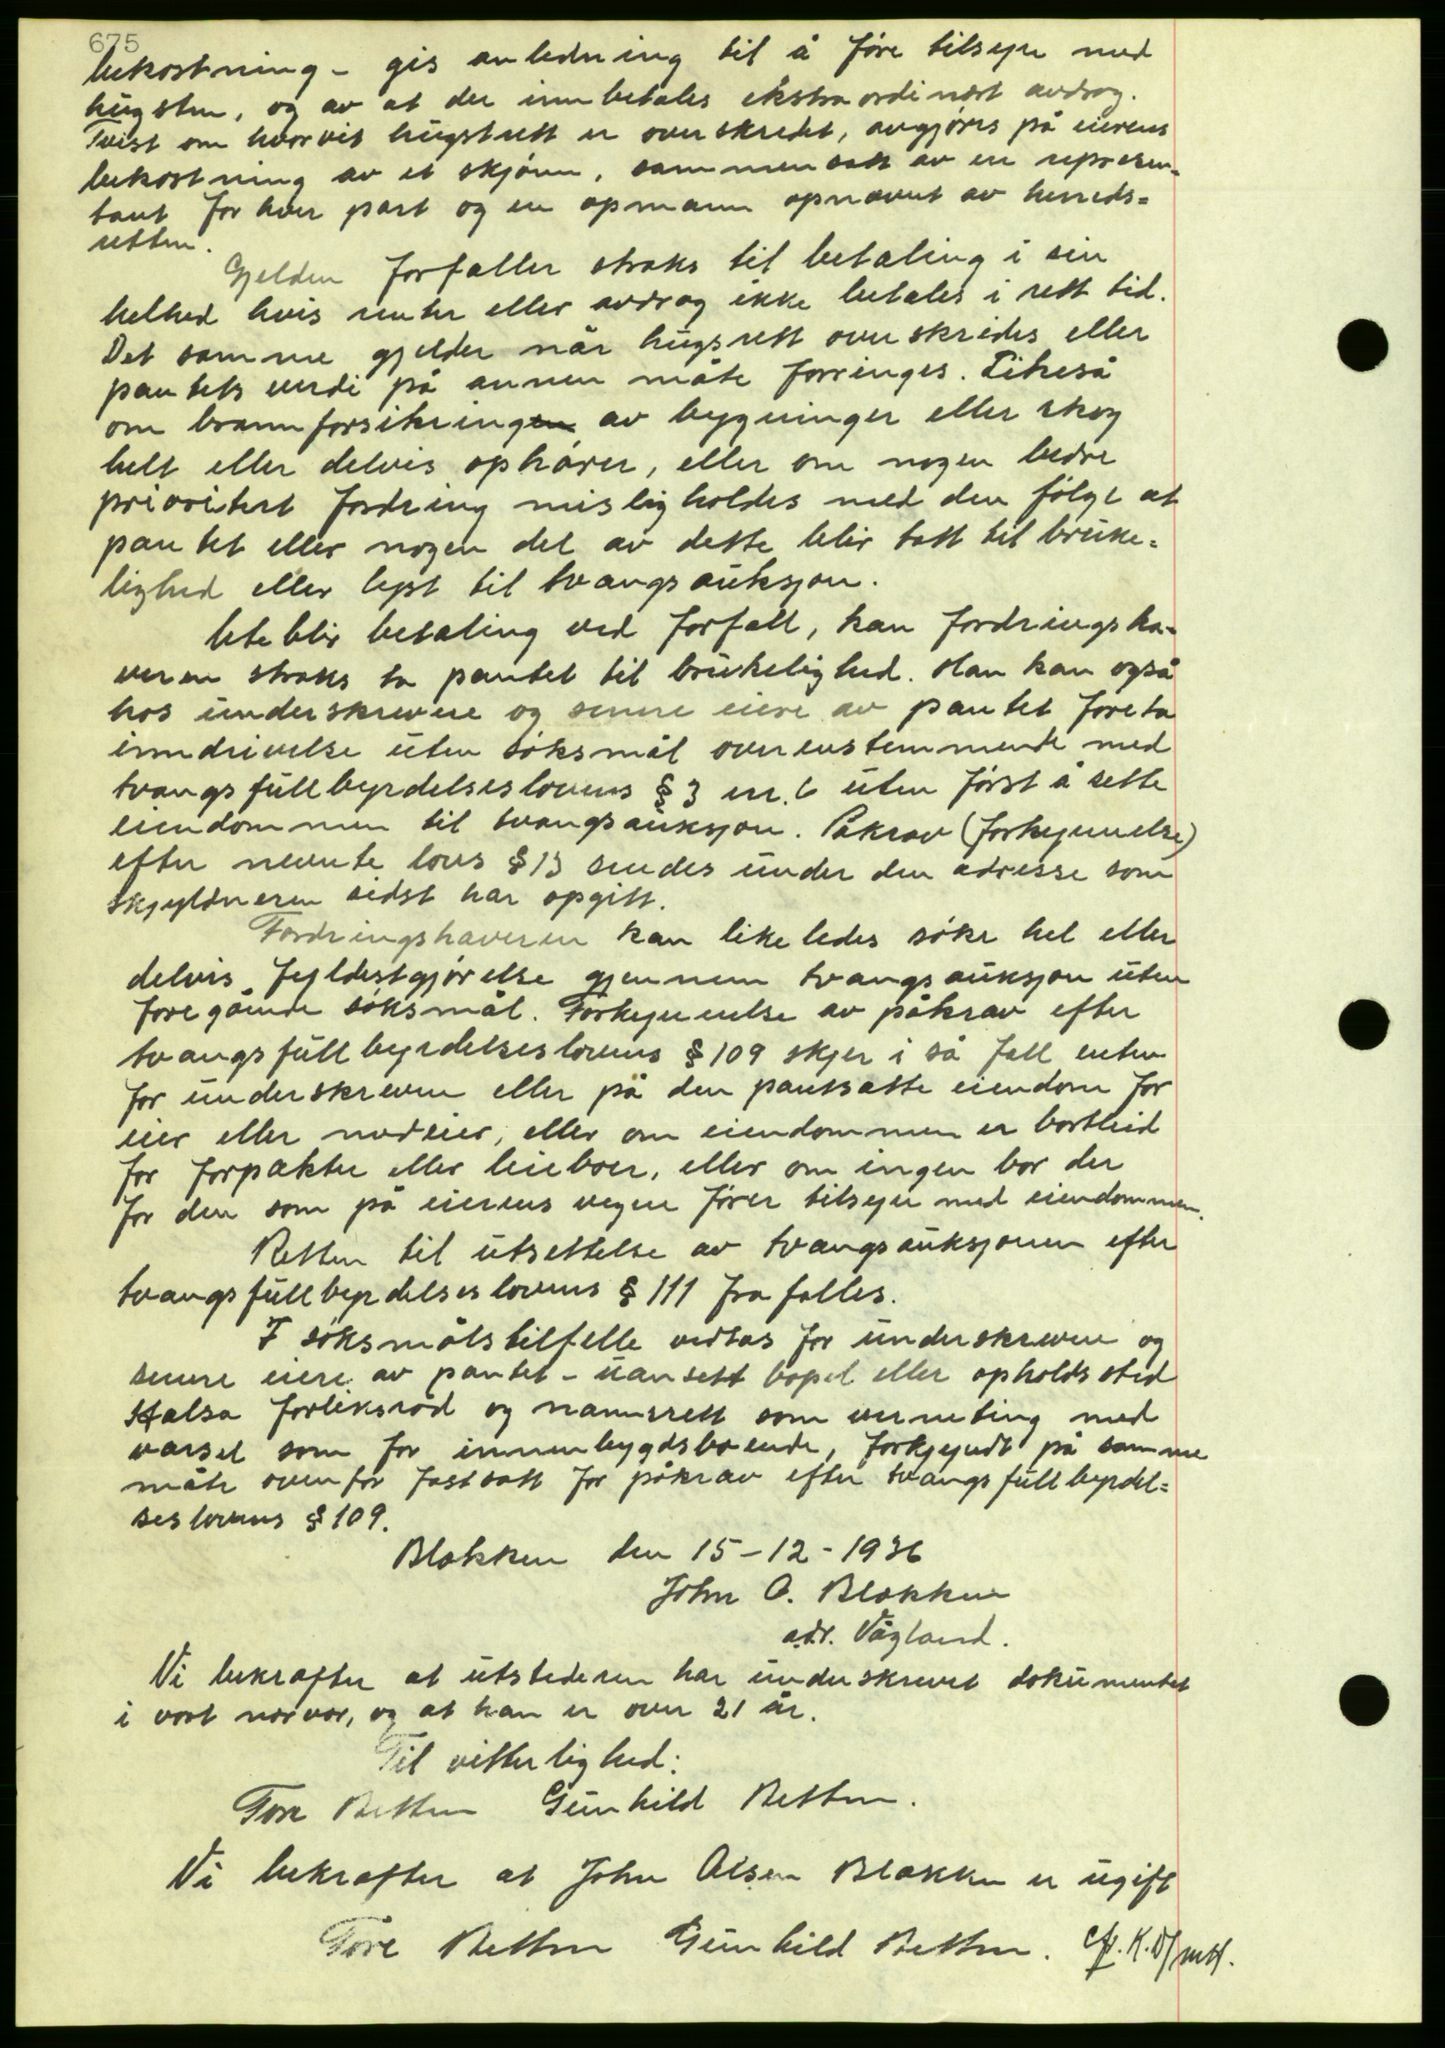 675
bekostning - gis anledning til å føre tilsyn med
hugsten, og av at der innbetales ekstraordinært avdrag.
Tvist om hvorvit hugstrett er overskredet, avgjøres på eierens
bekostning av et skjønn, sammensatt av en represen-
tant for hver part og en opmann opnevnt av herreds=
retten.
Gjelden forfaller straks til betaling i sin
helhed hvis renter eller avdrag ikke betales i rett tid.
Det samme gjelder når hugsrett overskrides eller
pantets verdi på annen måte forringes. Likeså
om brannforsikringen av bygninger eller skog
helt eller delvis ophører, eller om nogen bedre
prioritert fordring misligholdes med den følge at
pantet eller nogen del av dette blir tatt til bruke=
lighed eller lyst til tvangsauksjon.
Uteblir betaling ved forfall, kan fordringsha-
veren straks ta pantet til brukelighed. Han kan også
hos underskrevne og senere eiere av pantet foreta
inndrivelse uten søksmål overensstemmende med
tvangsfullbyrdelseslovens § 3 nr. 6 uten først å sette
eiendommen til tvangsauksjon. Påkrav (forkynnelse)
efter nevnte lovs § 13 sendes under den adresse som
skyldneren sidst har opgitt.
Fordringshaveren kan likeledes søke hel eller
delvis fyldestgjørelse gjennem tvangsauksjon uten
foregående søksmål. Forkynnelse av påkrav efter
tvangsfullbyrdelseslovens § 109 skjer i så fall enten
for underskrevne eller på den pantsatte eiendom for
eier eller medeier, eller om eiendommen er bortleid
for forpakter eller leieboer, eller om ingen bor der
for den som på eierens vegne fører tilsyn med eiendommen.
Retten til utsettelse av tvangsauksjonen efter
tvangsfullbyrdelseslovens § 111 frafalles.
I søksmålstilfelle vedtas for underskrevne og
senere eiere av pantet - uansett bopel eller opholdssted
Halsa forliksråd og namsrett som verneting med
varsel som for innenbygdsboende, forkyndt på samme
måte ovenfor fastsatt for påkrav efter tvangsfullbyrdel=
seslovens § 109.
Blekken den 15-12-1936
John O. Blekken
adr. Vågland.
Vi bekrefter at utstederen har underskrevet dokumentet
i vort nærvær, og at han er over 21 år.
Til vitterlighed:
Tore Betten Gunhild Betten.
Vi bekrefter at John Olsen Blekken er ugift
Tore Betten Gunhild Betten.